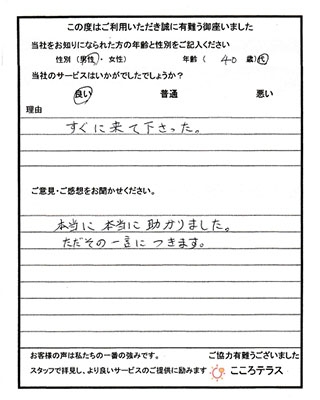 この度はご利用いただき誠に有難う御座いました
当社をお知りになられた方の年齢と性別をご記入ください
性別（男性・女性） 年齢（ 40 歳）代
当社のサービスはいかがでしたでしょうか？
良い 普通 悪い
理由
すぐに来て下さった。
ご意見・ご感想をお聞かせください。
本当に本当に助かりました。
ただその一言につきます。
お客様の声は私たちの一番の強みです。 ご協力有難うございました
スタッフで拝見し、より良いサービスのご提供に励みます こころテラス